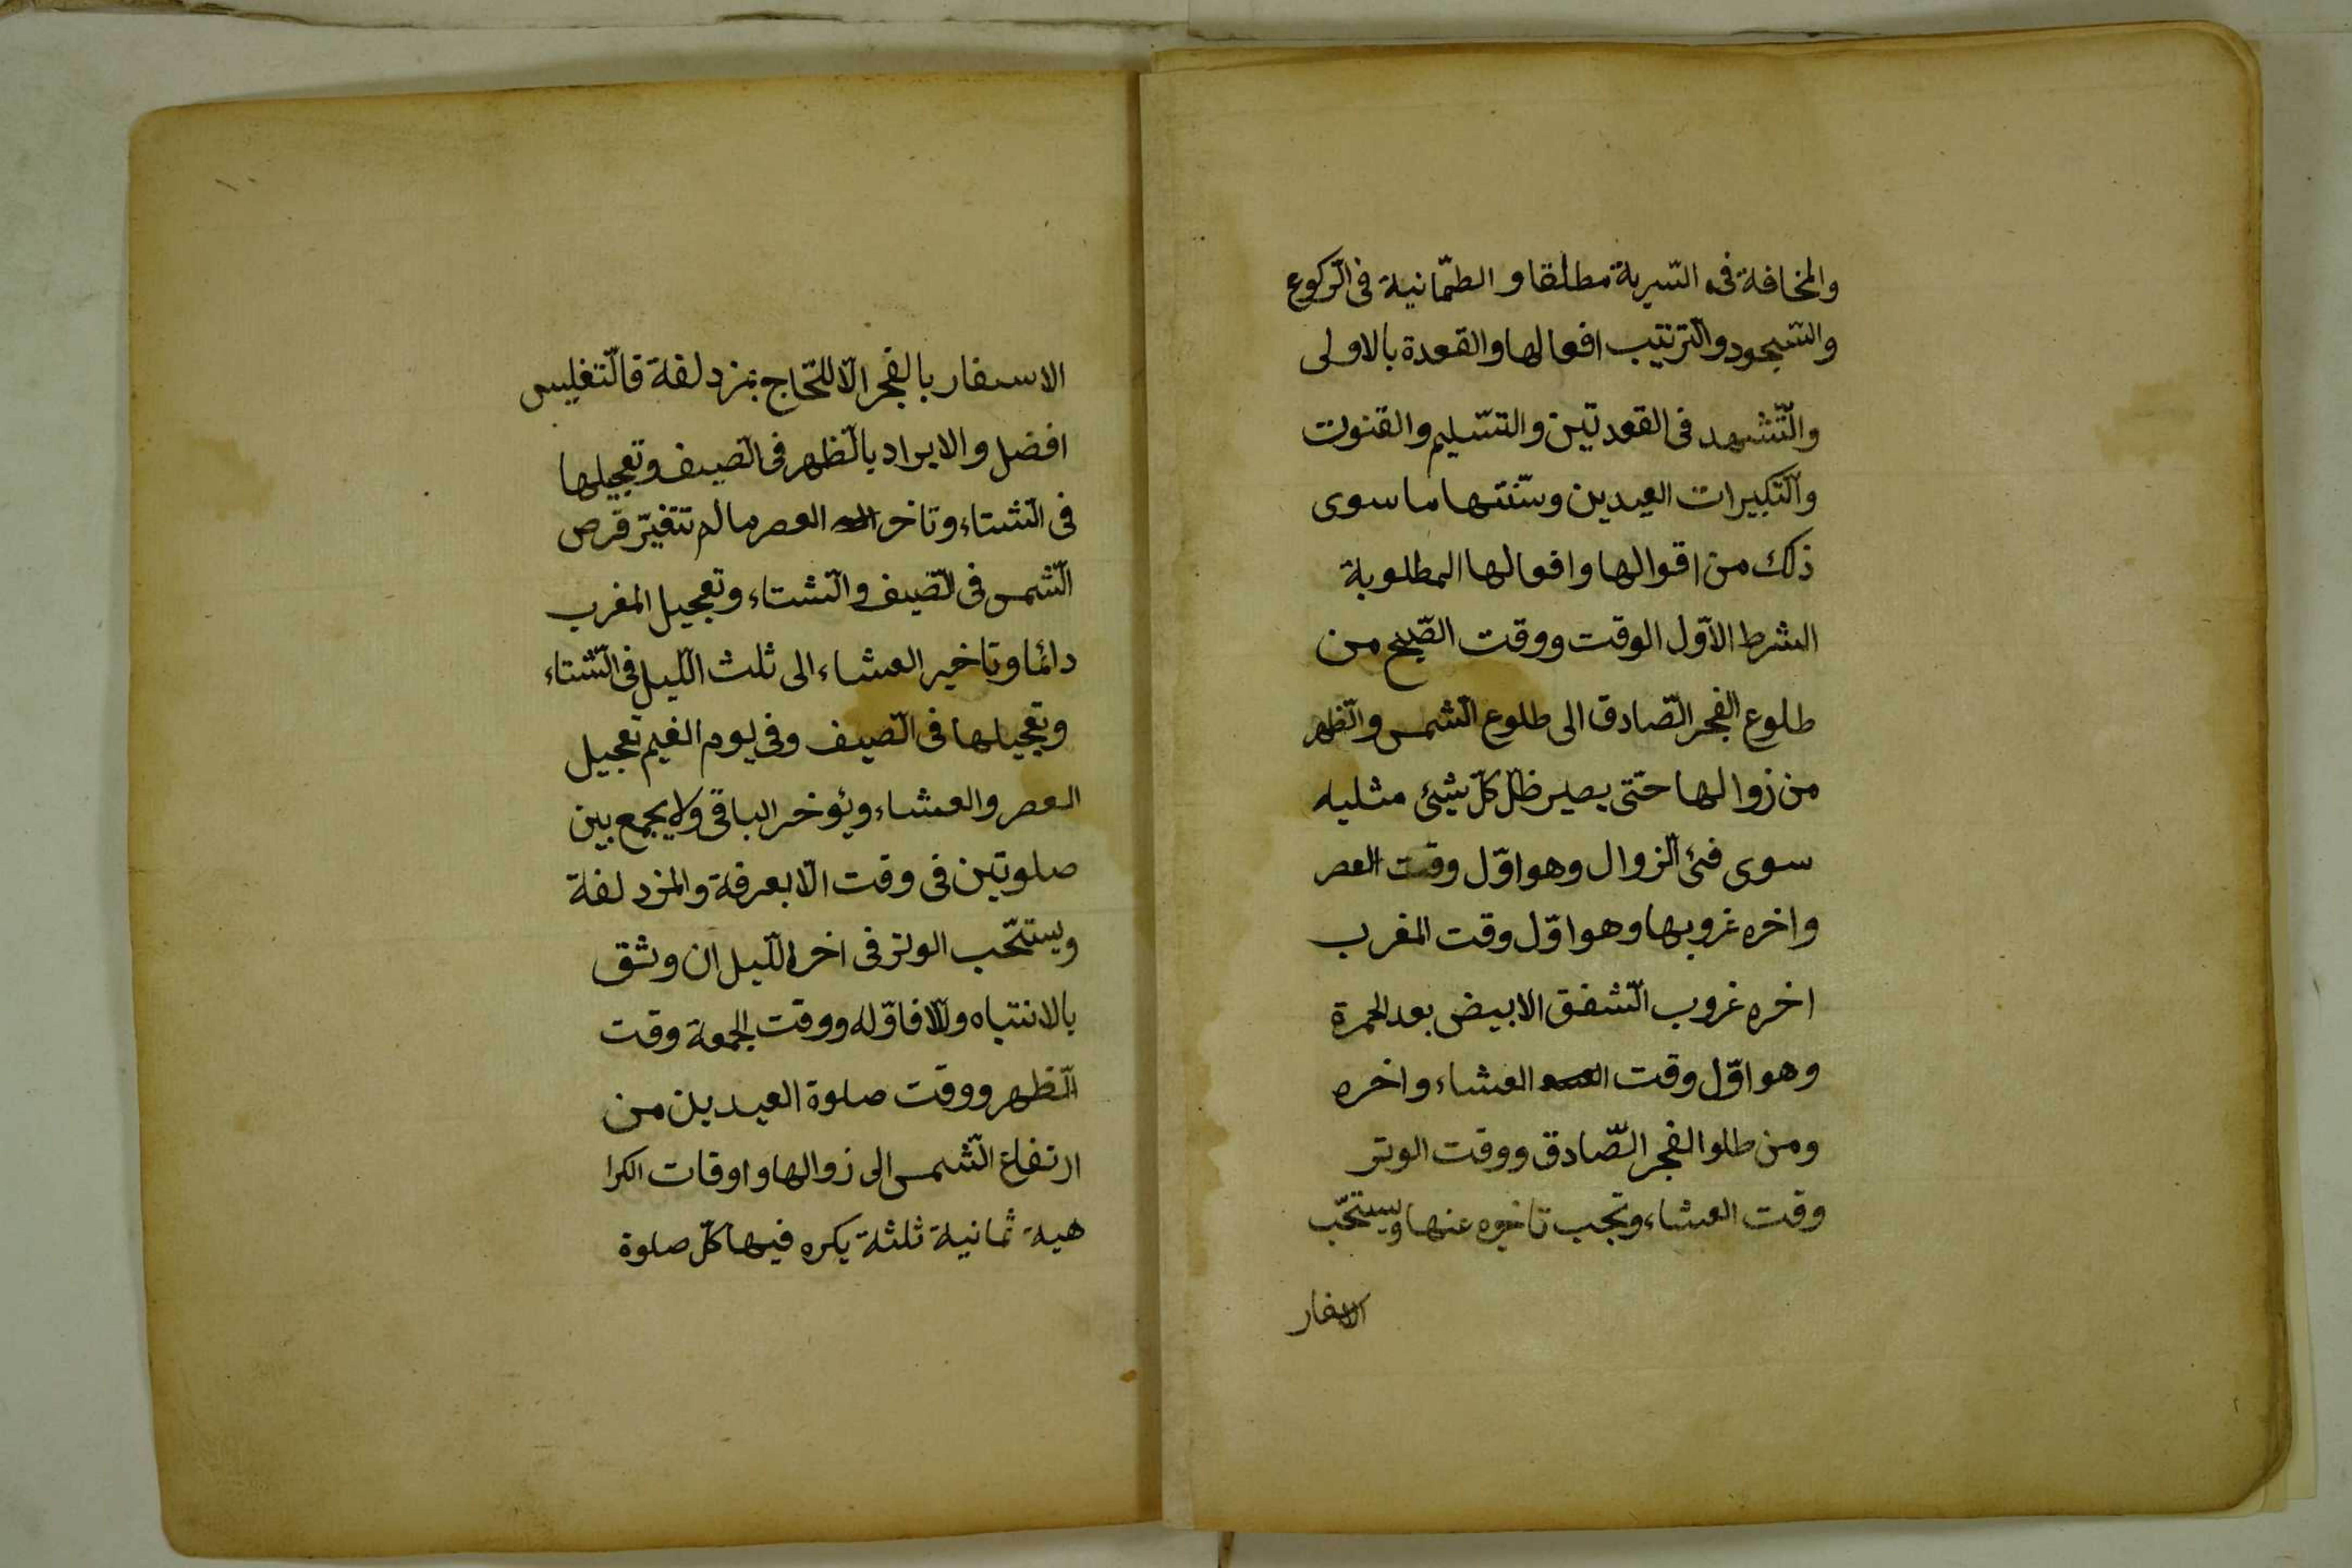 والمخافة فى السّرية مطلقا و الطمّانية فى الرّكوع
والسّجود والتّرتيب افعالها والقعدة بالاولى
والتّشهد فى القعدتين والتّسليم والقنوت
والتّكبيرات العيدين وسنّتها ما سوى
ذلك من اقوالها وافعالها المطلوبة
الشرط الاوّل الوقت ووقت الصّبح من
طلوع الفجر الصّادق الى طلوع الشّمس والظّهر
من زوالها حتّى يصير ظلّ كلّ شيئ مثليه
سوى فئ الزّوال وهو اوّل وقت العصر
واخره غروبها وهو اوّل وقت المغرب
اخره غروب الشّفق الابيض بعد الحمرة
وهو اوّل وقت العشاء واخره
ومن طلوا الفجر الصّادق ووقت الوتر
وقت العشاء وتجب تاخيره عنها ويستحّب
الاسفار
الاسفار بالفجر الّا للحّاج بمزدلفة فالتّغليس
افضل والابراد بالظّهر فى الصّيف وتعجيلها
فى الشّتاء وتاخر العصر ما لم تتغيّر قرص
الشّمس فى الصّيف والشّتاء وتعجيل المغرب
دائما وتاخير العشاء الى ثلث اللّيل فى الشّتاء
وتعجيلها فى الصّيف وفى يوم الغيم تعجيل
العصر والعشاء ويؤخر الباقى ولا يجمع بين
صلوتين فى وقت الّا بعرفة والمزدلفة
ويستحّب الوتر فى اخره اللّيل ان وثق
بالانتباه والّا فاوّله ووقت الجمعة وقت
الظّهر ووقت صلوة العيدين من
ارتفاع الشّمس الى زوالها واوقات الكرا
هية ثمانية ثلثة يكره فيها كلّ صلوة